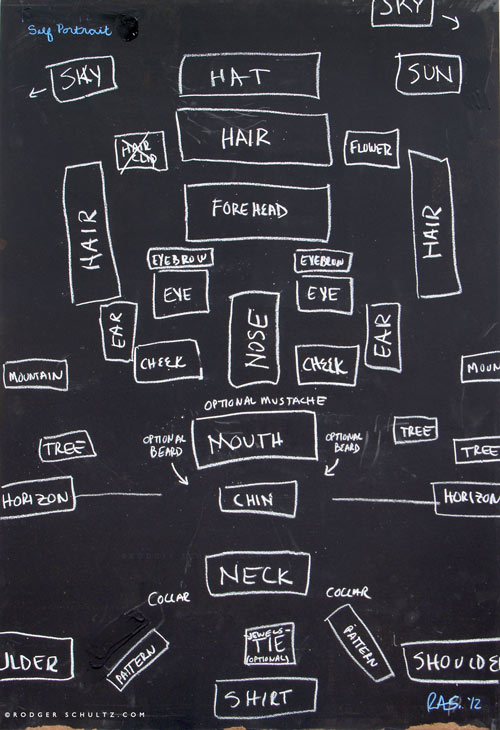 SKY
Self Portrait
SKY
HAT
SUN
HAIR
HAIR
CLIP
FLOWER
HAIR
HAIR
FOREHEAD
EYEBROW
EYEBROW
EYE
EYE
EAR
NOSE
EAR
CHEEK
CHEEK
MOUNTAIN
MOUN
OPTIONAL MUSTACHE
MOUTH
OPTIONAL
BEARD
OPTIONAL
BEARD
TREE
TREE
TREE
HORIZON
CHIN
HORIZON
NECK
COLLAR
COLLAR
PATTERN
JEWELS-
TIE
(OPTIONAL)
PATTERN
ULDER
SHOULDE
SHIRT
RAS. '12
© RODGER SCHULTZ.COM